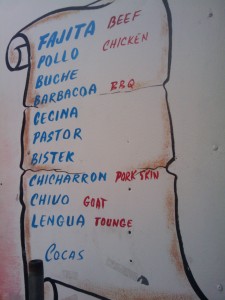 FAJITA BEEF
POLLO CHICKEN
BUCHE
BARBACOA BBQ
CECINA
PASTOR
BISTEK
CHICHARRON PORK SKIN
CHIVO GOAT
LENGUA TOUNGE
COCAS